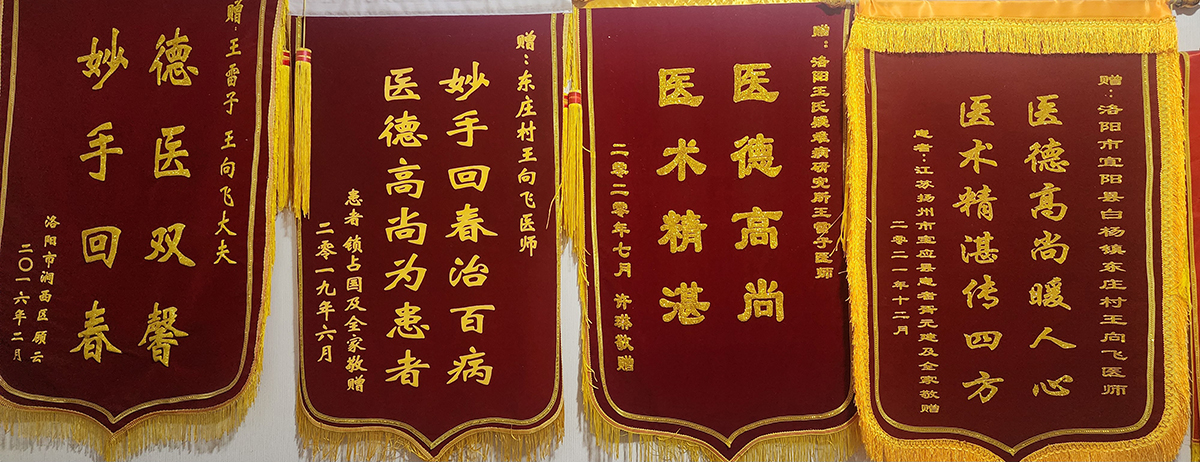 赠:王雷子 王向飞大夫
德医双馨
妙手回春
洛阳市涧西区顾云
二〇一六年二月
赠:东庄村王向飞医师
妙手回春治百病
医德高尚为患者
患者 锁占国及全家敬赠
二零一九年六月
赠:洛阳王氏疑难病研究所王雷子医师
医德高尚
医术精湛
二零二零年七月 许琳敬赠
赠:洛阳市宜阳县白杨镇东庄村王向飞医师
医德高尚暖人心
医术精湛传四方
患者:江苏扬州市宝应县患者胥元建及全家敬赠
二零二一年十二月